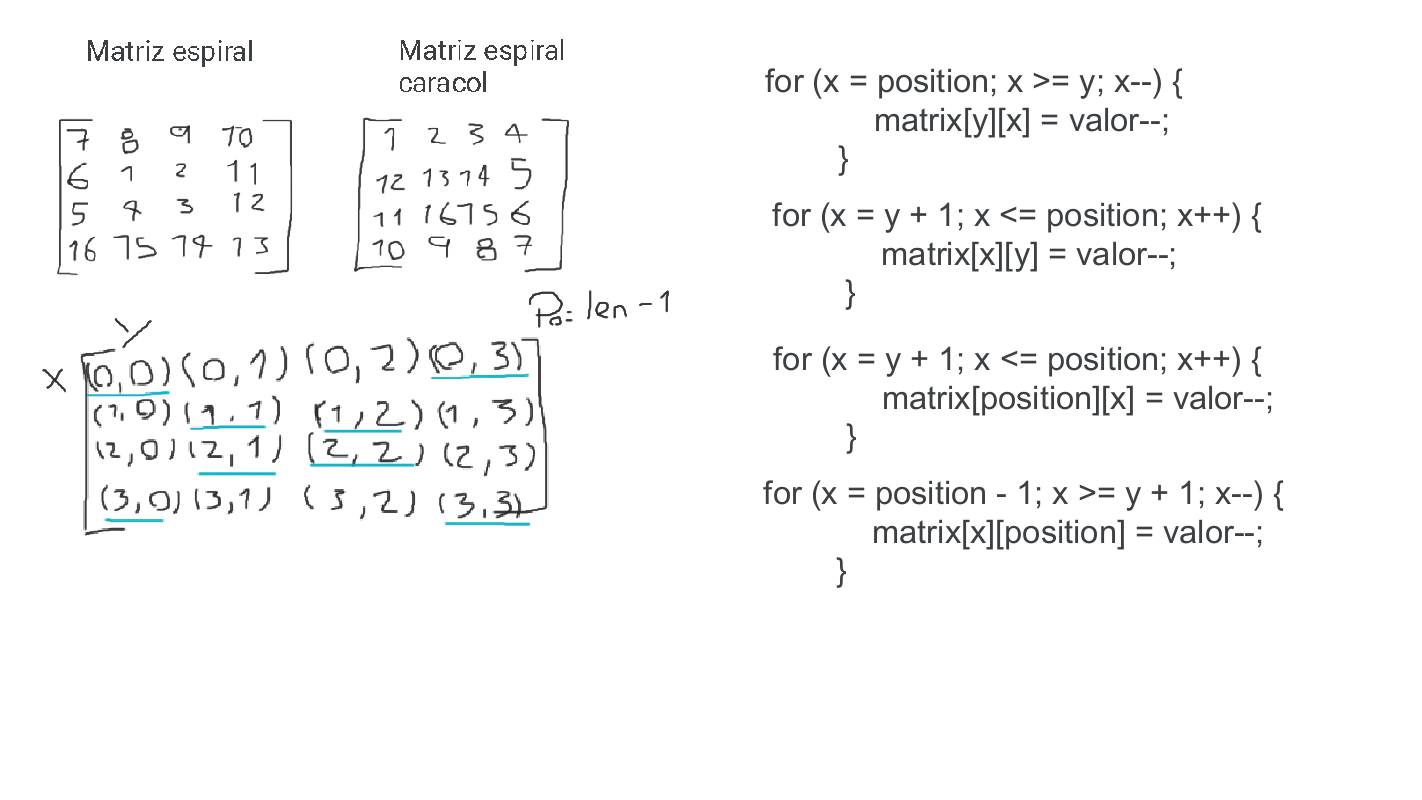 Matriz espiral
7 8 9 10
6 1 2 11
5 4 3 12
16 15 14 13
Matriz espiral
caracol
1 2 3 4
12 13 14 5
11 16 15 6
10 9 8 7
Po= len - 1
y
x
(0,0) (0,1) (0,2) (0,3)
(1,0) (1,1) (1,2) (1,3)
(2,0) (2,1) (2,2) (2,3)
(3,0) (3,1) (3,2) (3,3)
for (x = position; x >= y; x--) {
matrix[y][x] = valor--;
}
for (x = y + 1; x <= position; x++) {
matrix[x][y] = valor--;
}
for (x = y + 1; x <= position; x++) {
matrix[position][x] = valor--;
}
for (x = position - 1; x >= y + 1; x--) {
matrix[x][position] = valor--;
}